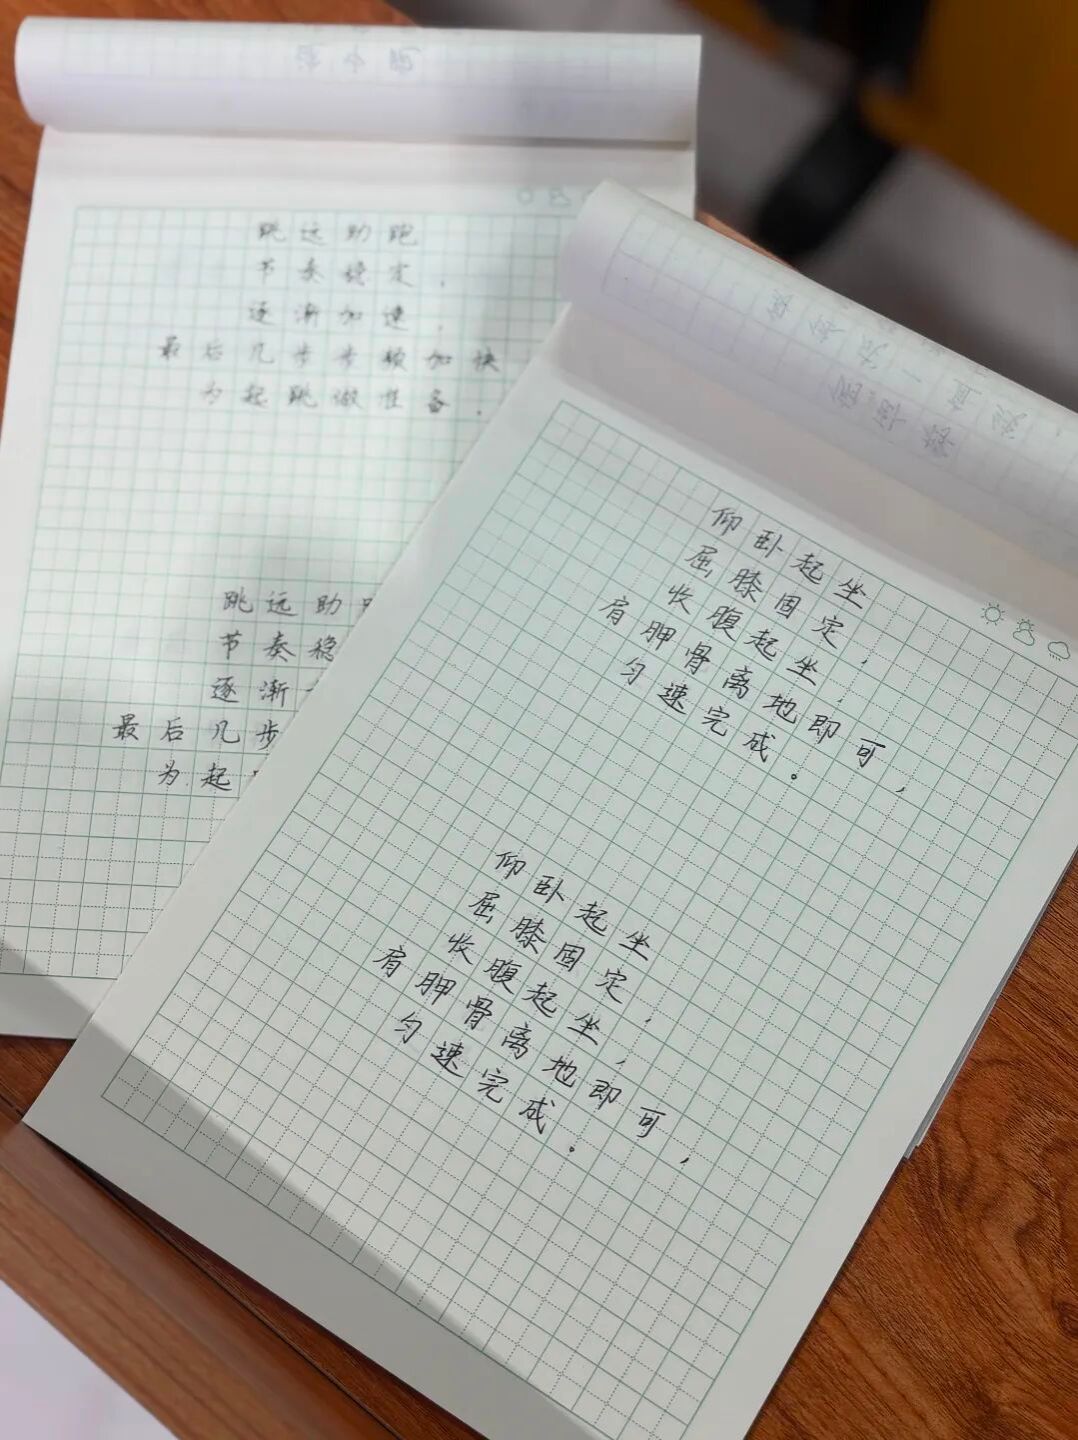 跳远助跑
节奏稳定，
逐渐加速，
最后几步步频加快
为起跳做准备。
跳远助
节奏稳
逐渐
最后几步
为起
仰卧起坐
屈膝固定，
收腹起坐，
肩胛骨离地即可，
匀速完成。
仰卧起坐
屈膝固定，
收腹起坐，
肩胛骨离地即可，
匀速完成。